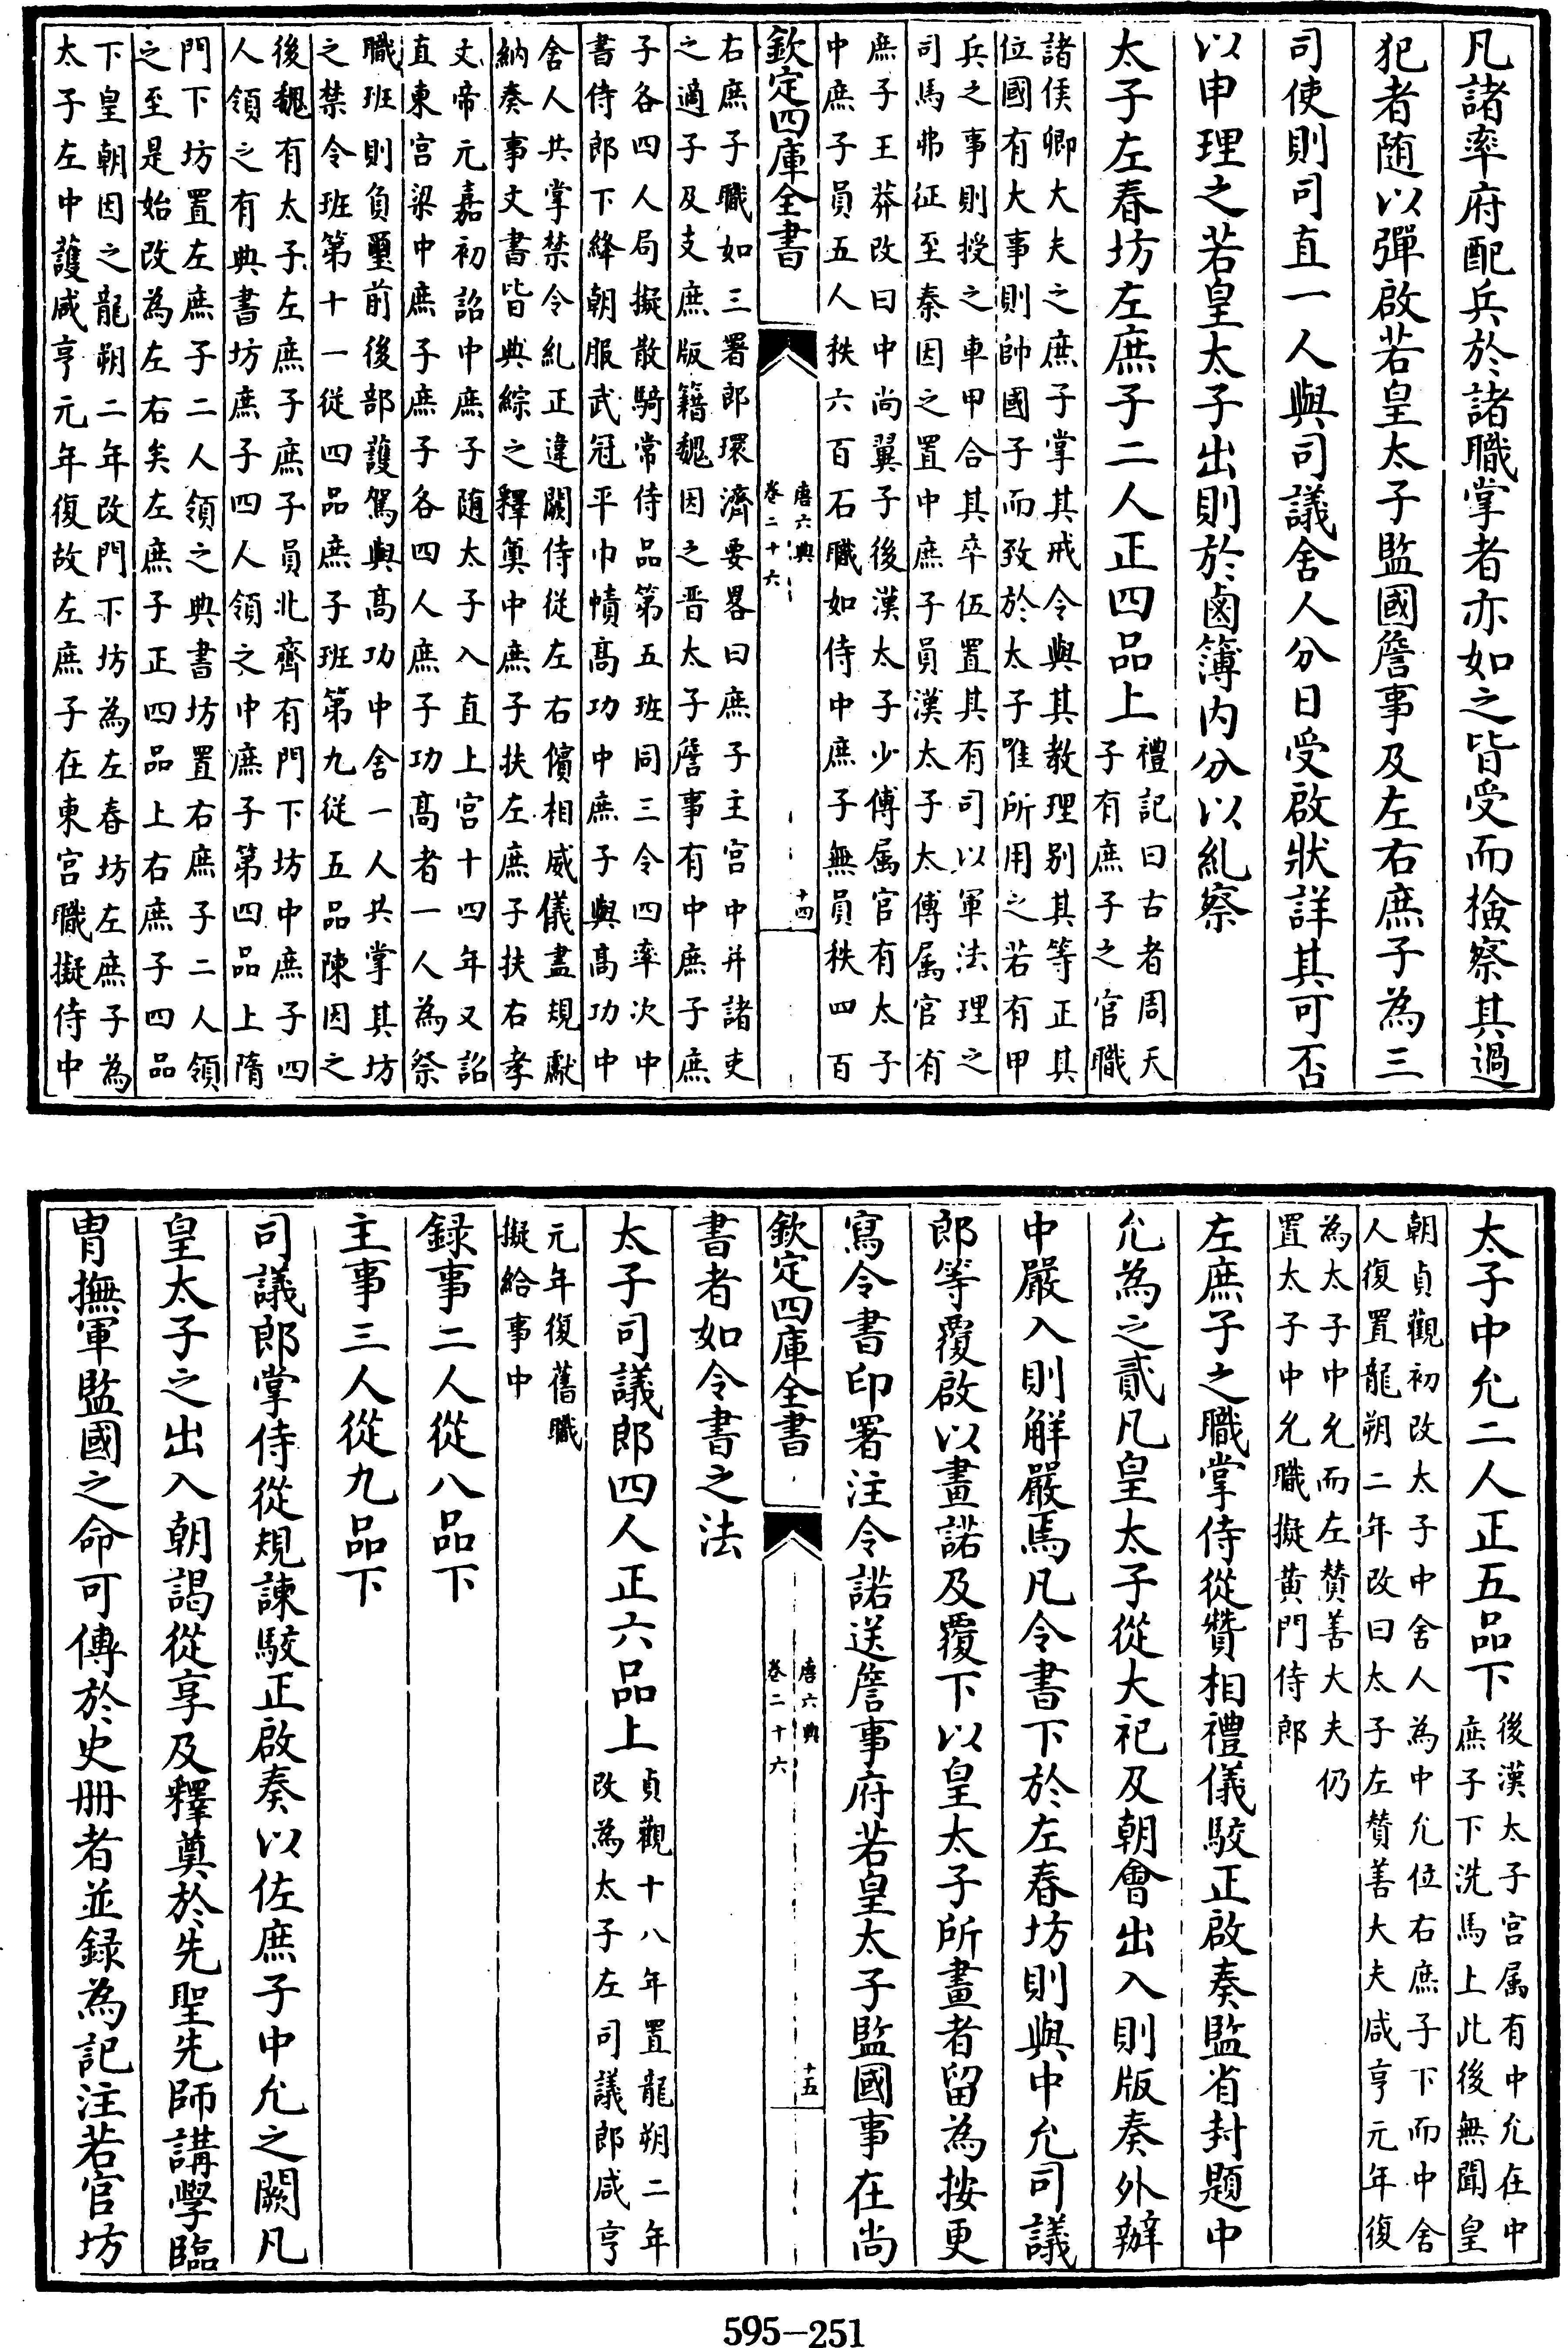 凡諸率府配兵於諸職掌者亦如之皆受而檢察其過
犯者随以彈啟若皇太子監國詹事及左右庶子為三
司使則司直一人與司議舍人分日受啟狀詳其可否
以申理之若皇太子出則於鹵簿内分以糺察
太子左春坊左庶子二人正四品上
禮記曰古者周天
子有庶子之官職
諸侯卿大夫之庶子掌其戒令與其教理别其等正其
位國有大事則帥國子而致於太子唯所用之若有甲
兵之事則授之車甲合其卒伍置其有司以軍法理之
司馬弗征至秦因之置中庶子員漢太子太傅属官有
庶子王莽改曰中尚翼子後漢太子少傅属官有太子
中庶子員五人秩六百石職如侍中庶子無員秩四百
欽定四庫全書
唐六典
卷二十六
十四
右庶子職如三署郎環濟要畧曰庶子主宫中并諸吏
之適子及支庶版籍魏因之晋太子詹事有中庶子庶
子各四人局擬散騎常侍品第五班同三令四率次中
書侍郎下絳朝服武冠平巾幘髙功中庶子與髙功中
舍人共掌禁令糺正違闕侍從左右儐相威儀盡規獻
納奏事文書皆典綜之釋奠中庶子扶左庶子扶右孝
丈帝元嘉初詔中庶子随太子入直上宫十四年又詔
直東宫梁中庶子庶子各四人庶子功髙者一人為祭
職班則負璽前後部護駕與髙功中舍一人共掌其坊
之禁令班第十一從四品庶子班第九從五品陳因之
後魏有太子左庶子庶子員北齊有門下坊中庶子四
人領之有典書坊庶子四人領之中庶子第四品上隋
門下坊置左庶子二人領之典書坊置右庶子二人領
之至是始改為左右矣左庶子正四品上右庶子四品
下皇朝因之龍朔二年改門下坊為左春坊左庶子為
太子左中護咸亨元年復故左庶子在東宫職擬侍中
太子中允二人正五品下
後漢太子宫属有中允在中
庶子下洗馬上此後無聞皇
朝貞觀初改太子中舍人為中允位右庶子下而中舍
人復置龍朔二年改曰太子左贊善大夫咸亨元年復
為太子中允而左贊善大夫仍
置太子中允職擬黄門侍郎
左庶子之職掌侍從贊相禮儀駮正啟奏監省封題中
允為之貳凡皇太子從大祀及朝會出入則版奏外辦
中嚴入則解嚴焉凡令書下於左春坊則與中允司議
郎等覆啟以畫諾及覆下以皇太子所畫者留為按更
寫令書印署注令諾送詹事府若皇太子監國事在尚
欽定四庫全書
唐六典
卷二十六
十五
書者如令書之法
太子司議郎四人正六品上
貞觀十八年置龍朔二年
改為太子左司議郎咸亨
元年復舊職
擬給事中
録事二人從八品下
主事三人從九品下
司議郎掌侍從規諫駮正啟奏以佐庶子中允之闕凡
皇太子之出入朝謁從享及釋奠於先聖先師講學臨
胄撫軍監國之命可傳於史册者並録為記注若官坊
595—251